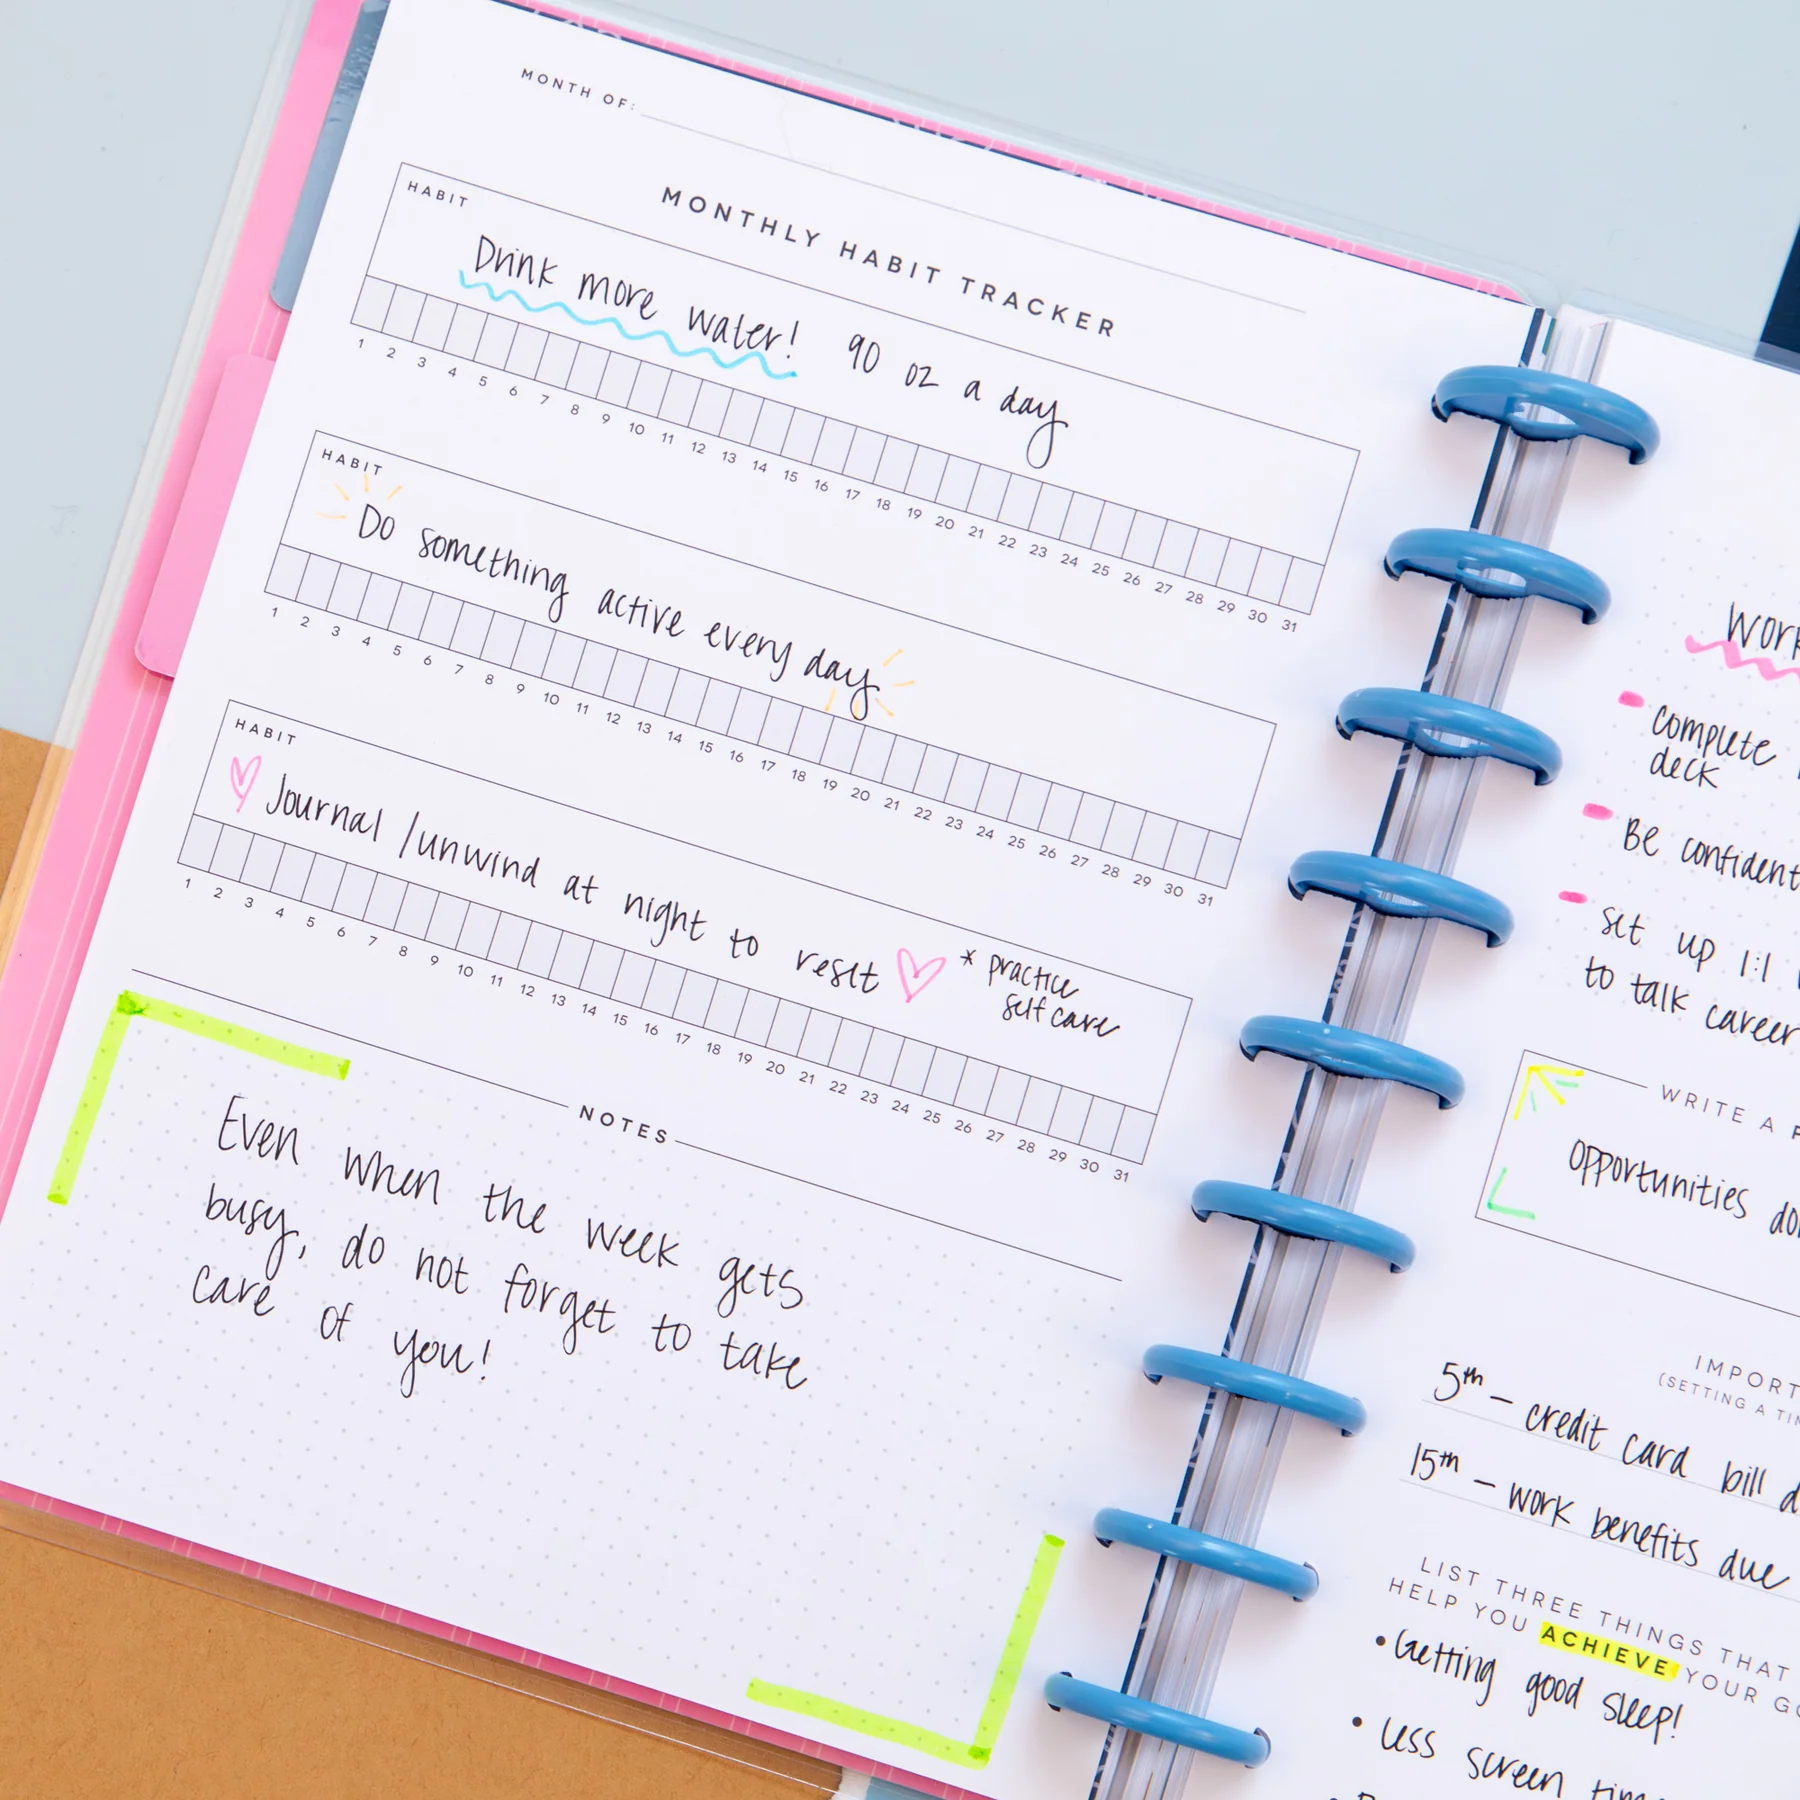 MONTH OF:
MONTHLY HABIT TRACKER
HABIT
Drink more water! 90 oz a day
1 2 3 4 5 6 7 8 9 10 11 12 13 14 15 16 17 18 19 20 21 22 23 24 25 26 27 28 29 30 31
HABIT
Do something active every day
1 2 3 4 5 6 7 8 9 10 11 12 13 14 15 16 17 18 19 20 21 22 23 24 25 26 27 28 29 30 31
HABIT
Journal / unwind at night to reset * practice
self care
1 2 3 4 5 6 7 8 9 10 11 12 13 14 15 16 17 18 19 20 21 22 23 24 25 26 27 28 29 30 31
NOTES
Even when the week gets
busy, do not forget to take
care of you!
complete
deck
Be confident
set up 1:1
to talk career
WRITE A
opportunities
5th - credit card bill
15th - work benefits due
LIST THREE THINGS THAT
HELP YOU ACHIEVE YOUR
• Getting good sleep!
• Less screen